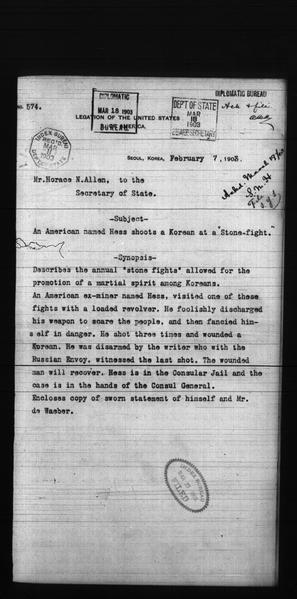 DIPLOMATIC BUREAU
No. 574.
DIPLOMATIC
MAR 18 1903
BUREAU
DEP'T OF STATE
MAR 18 1903
LEGATION OF THE UNITED STATES
OF AMERICA,
INDEX BUREAU
MAR
1903
SEOUL, KOREA, February 7, 1903.
Mr. Horace N. Allen, to the
Secretary of State.
-Subject-
An American named Hess shoots a Korean at a "Stone-fight."
-Synopsis-
Describes the annual "stone fights" allowed for the
promotion of a martial spirit among Koreans.
An American ex-miner named Hess, visited one of these
fights with a loaded revolver. He foolishly discharged
his weapon to scare the people, and then fancied him-
self in danger. He shot three times and wounded a
Korean. He was disarmed by the writer who with the
Russian Envoy, witnessed the last shot. The wounded
man will recover. Hess is in the Consular Jail and the
case is in the hands of the Consul General.
Encloses copy of sworn statement of himself and Mr.
de Waeber.
INDEX BUREAU
FILED